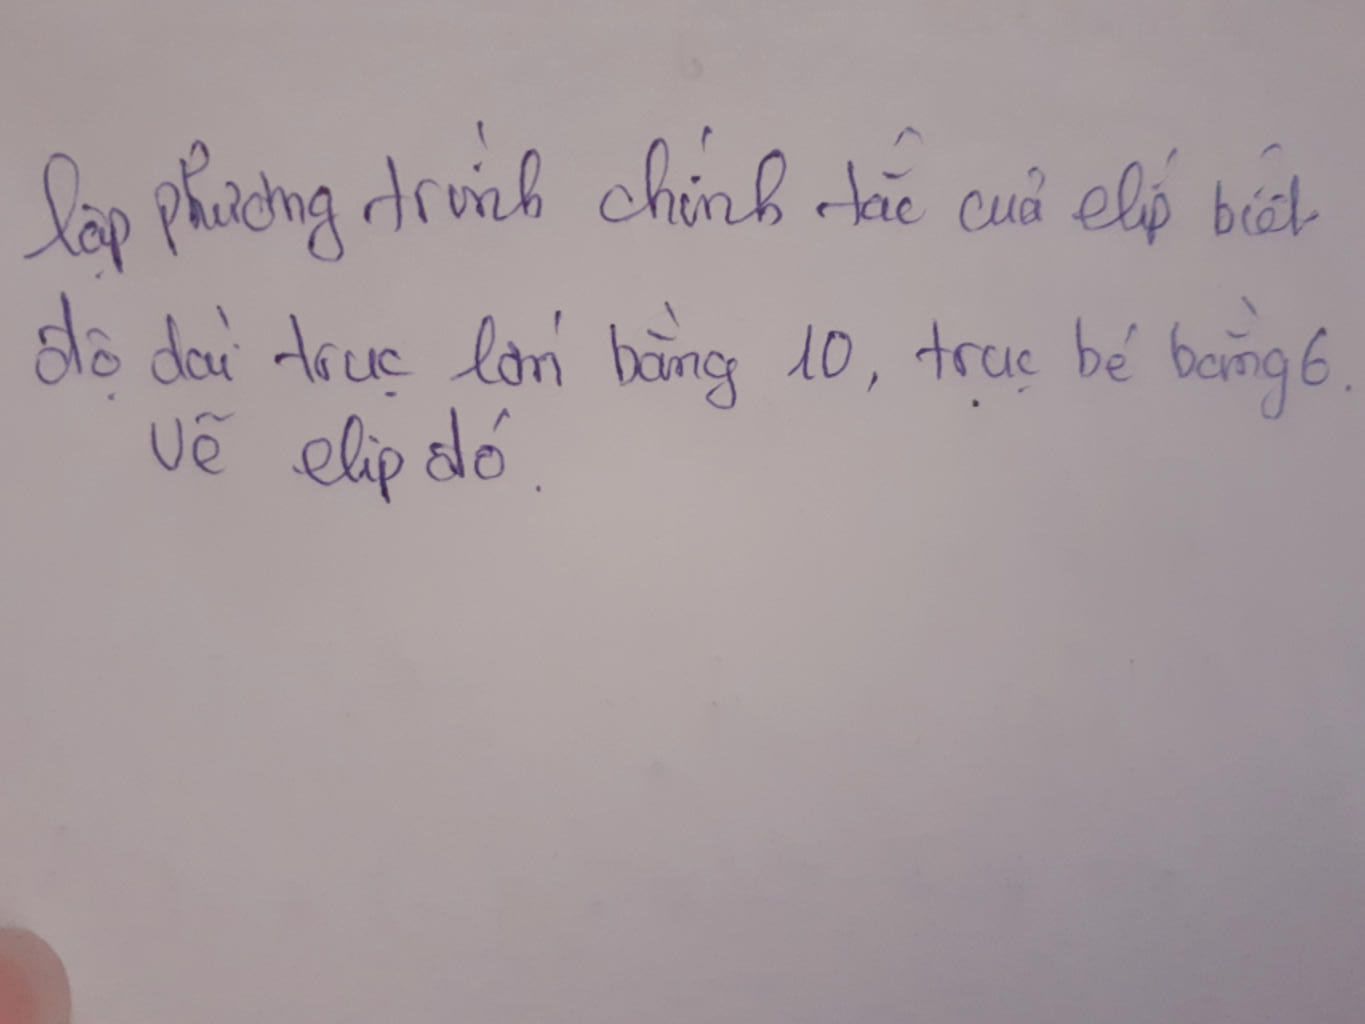 lập phương trình chính tắc của elip biết
độ dài trục lớn bằng 10, trục bé bằng 6.
Vẽ elip đó.